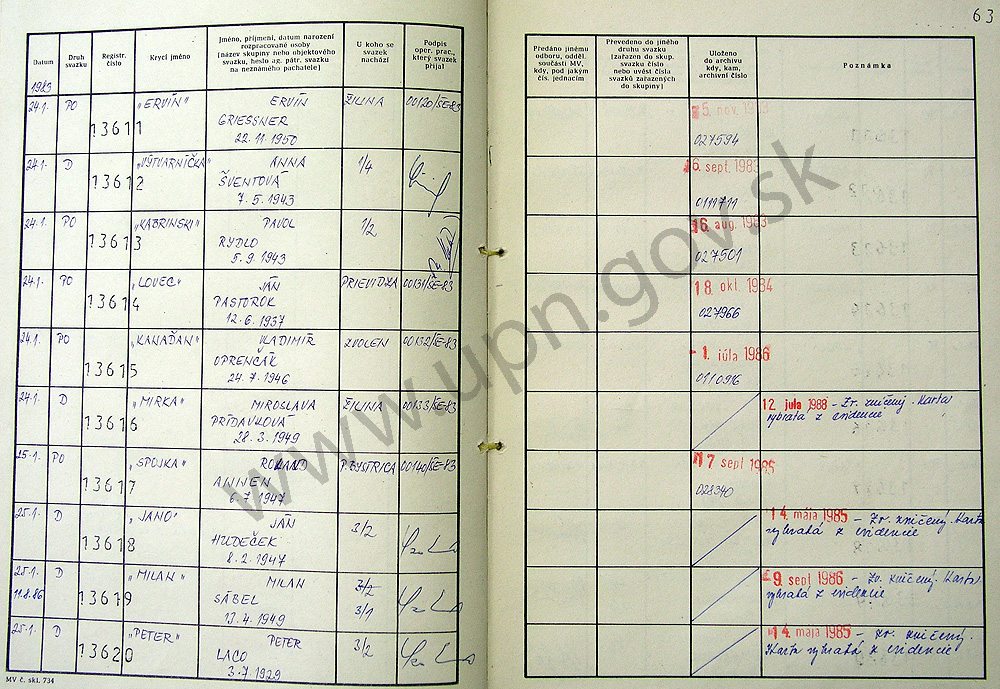 63
Datum
Druh svazku
Registr. číslo
Krycí jméno
Jméno, příjmení, datum narození
rozpracované osoby
(název skupiny nebo objektového
svazku, heslo ag. pátr. svazku
na neznámého pachatele)
U koho se
svazek
nachází
Podpis
oper. prac.,
který svazek
přijal
Předáno jinému
odboru, odděl.
součásti MV,
kdy, pod jakým
čís. jednacím
Převedeno do jiného
druhu svazku
(zařazen do skup.
svazku číslo
nebo uvést čísla
svazků zařazených
do skupiny)
Uloženo
do archivu
kdy, kam,
archivní číslo
Poznámka
1983
24.1. PO 13611 "ERVÍN" ERVÍN ŽILINA 00120/SE-83
GRIESSNER
22.11.1950
5. nov.
027594
24.1. D 13612 "VÝTVARNÍČKA" ANNA 1/4
ŠVENTOVÁ
7.5.1943
6. sept. 1983
0111711
24.1. PO 13613 "KABRINSKI" PAVOL 1/2
RYDLO
5.9.1943
16. aug. 1983
027501
24.1. PO 13614 "LOVEC" JÁN PRIEVIDZA 00131/SE-83
PASTOROK
12.6.1937
18. okt. 1984
027966
24.1. PO 13615 "KANAĎAN" VLADIMÍR ZVOLEN 00132/SE-83
OPRENČÁK
24.7.1946
- 1. júla 1986
0110916
24.1. D 13616 "MIRKA" MIROSLAVA ŽILINA 00133/SE-83
PRÍDAVKOVÁ
28.3.1949
12. jula 1988 - Zv. zničený. Karta
vybratá z evidencie
25.1. PO 13617 "SPOJKA" ROLAND P.BYSTRICA 00140/SE-83
ANNEN
6.7.1947
17. sept 1985
028340
25.1. D 13618 "JANO" JÁN 3/2
HUDEČEK
8.2.1947
14. mája 1985 - Zv. zničený. Karta
vybratá z evidencie
25.1. D 13619 "MILAN" MILAN 3/2
11.8.86 SÁBEL 3/1
13.4.1949
9. sept 1986 - Zv. zničený. Karta
vybratá z evidencie
25.1. D 13620 "PETER" PETER 3/2
LACO
3.7.1929
14. mája 1985 - Zv. zničený.
Karta vybratá z evidencie
MV č. skl. 734
www.upn.gov.sk